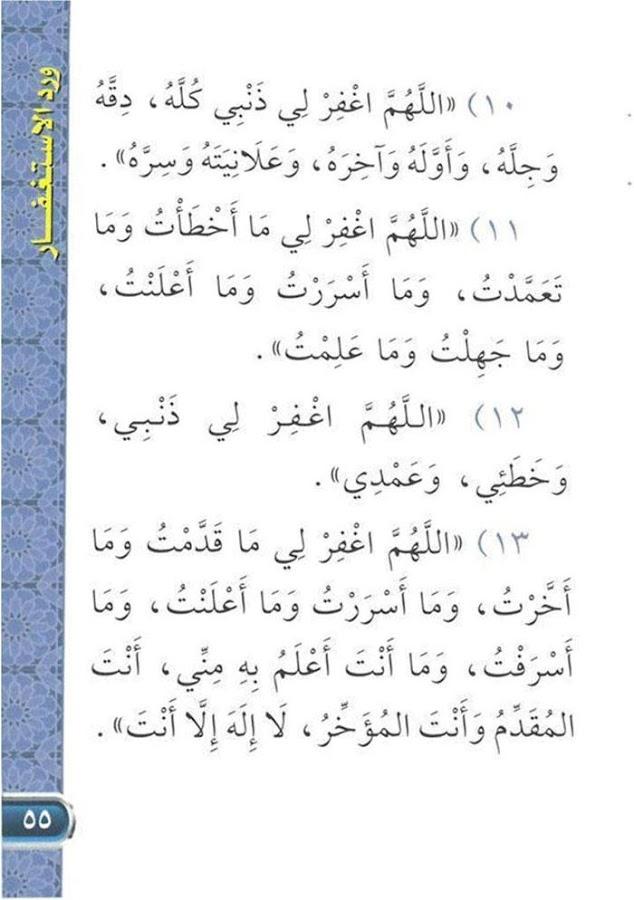 ورد الاستغفار
١٠) «اللَّهُمَّ اغْفِرْ لِي ذَنْبِي كُلَّهُ، دِقَّهُ
وَجِلَّهُ، وَأَوَّلَهُ وَآخِرَهُ، وَعَلَانِيَتَهُ وَسِرَّهُ».
١١) «اللَّهُمَّ اغْفِرْ لِي مَا أَخْطَأْتُ وَمَا
تَعَمَّدْتُ، وَمَا أَسْرَرْتُ وَمَا أَعْلَنْتُ،
وَمَا جَهِلْتُ وَمَا عَلِمْتُ».
١٢) «اللَّهُمَّ اغْفِرْ لِي ذَنْبِي،
وَخَطَئِي، وَعَمْدِي».
١٣) «اللَّهُمَّ اغْفِرْ لِي مَا قَدَّمْتُ وَمَا
أَخَّرْتُ، وَمَا أَسْرَرْتُ وَمَا أَعْلَنْتُ، وَمَا
أَسْرَفْتُ، وَمَا أَنْتَ أَعْلَمُ بِهِ مِنِّي، أَنْتَ
المُقَدِّمُ وَأَنْتَ المُؤَخِّرُ، لَا إِلَهَ إِلَّا أَنْتَ».
٥٥